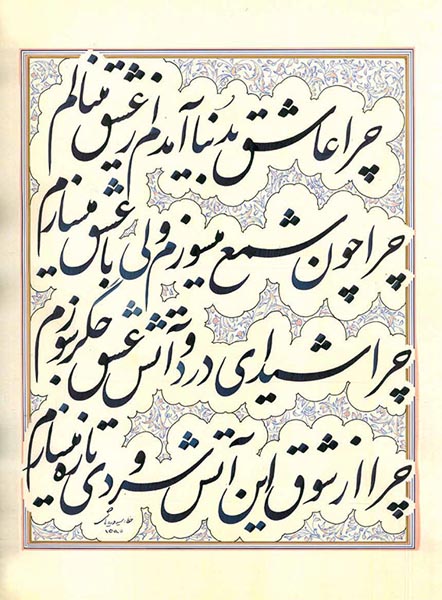 چرا عاشق بدنیا آمدم از عشق مینالم
چرا چون شمع میسوزم ولی با عشق میسازم
چرا شیدای درد و آتش عشق جگرسوزم
چرا از شوق این آتش سرودی تازه میسازم